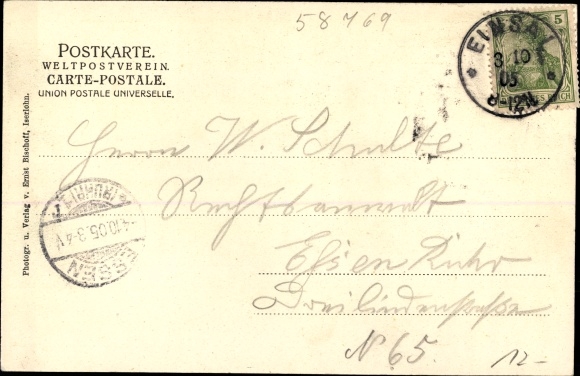 58769
POSTKARTE.
WELTPOSTVEREIN.
CARTE-POSTALE.
UNION POSTALE UNIVERSELLE.
EINSAL
3 10
05
8-12N
5
REICH
Photogr. u. Verlag v. Ernst Bischoff, Iserlohn.
Herrn W. Schulte
Rechtsanwalt
Essen Ruhr
Dreilindenstraße
N 65.
12-
ESSEN
(RUHR) 1
4.10.05.3-4V